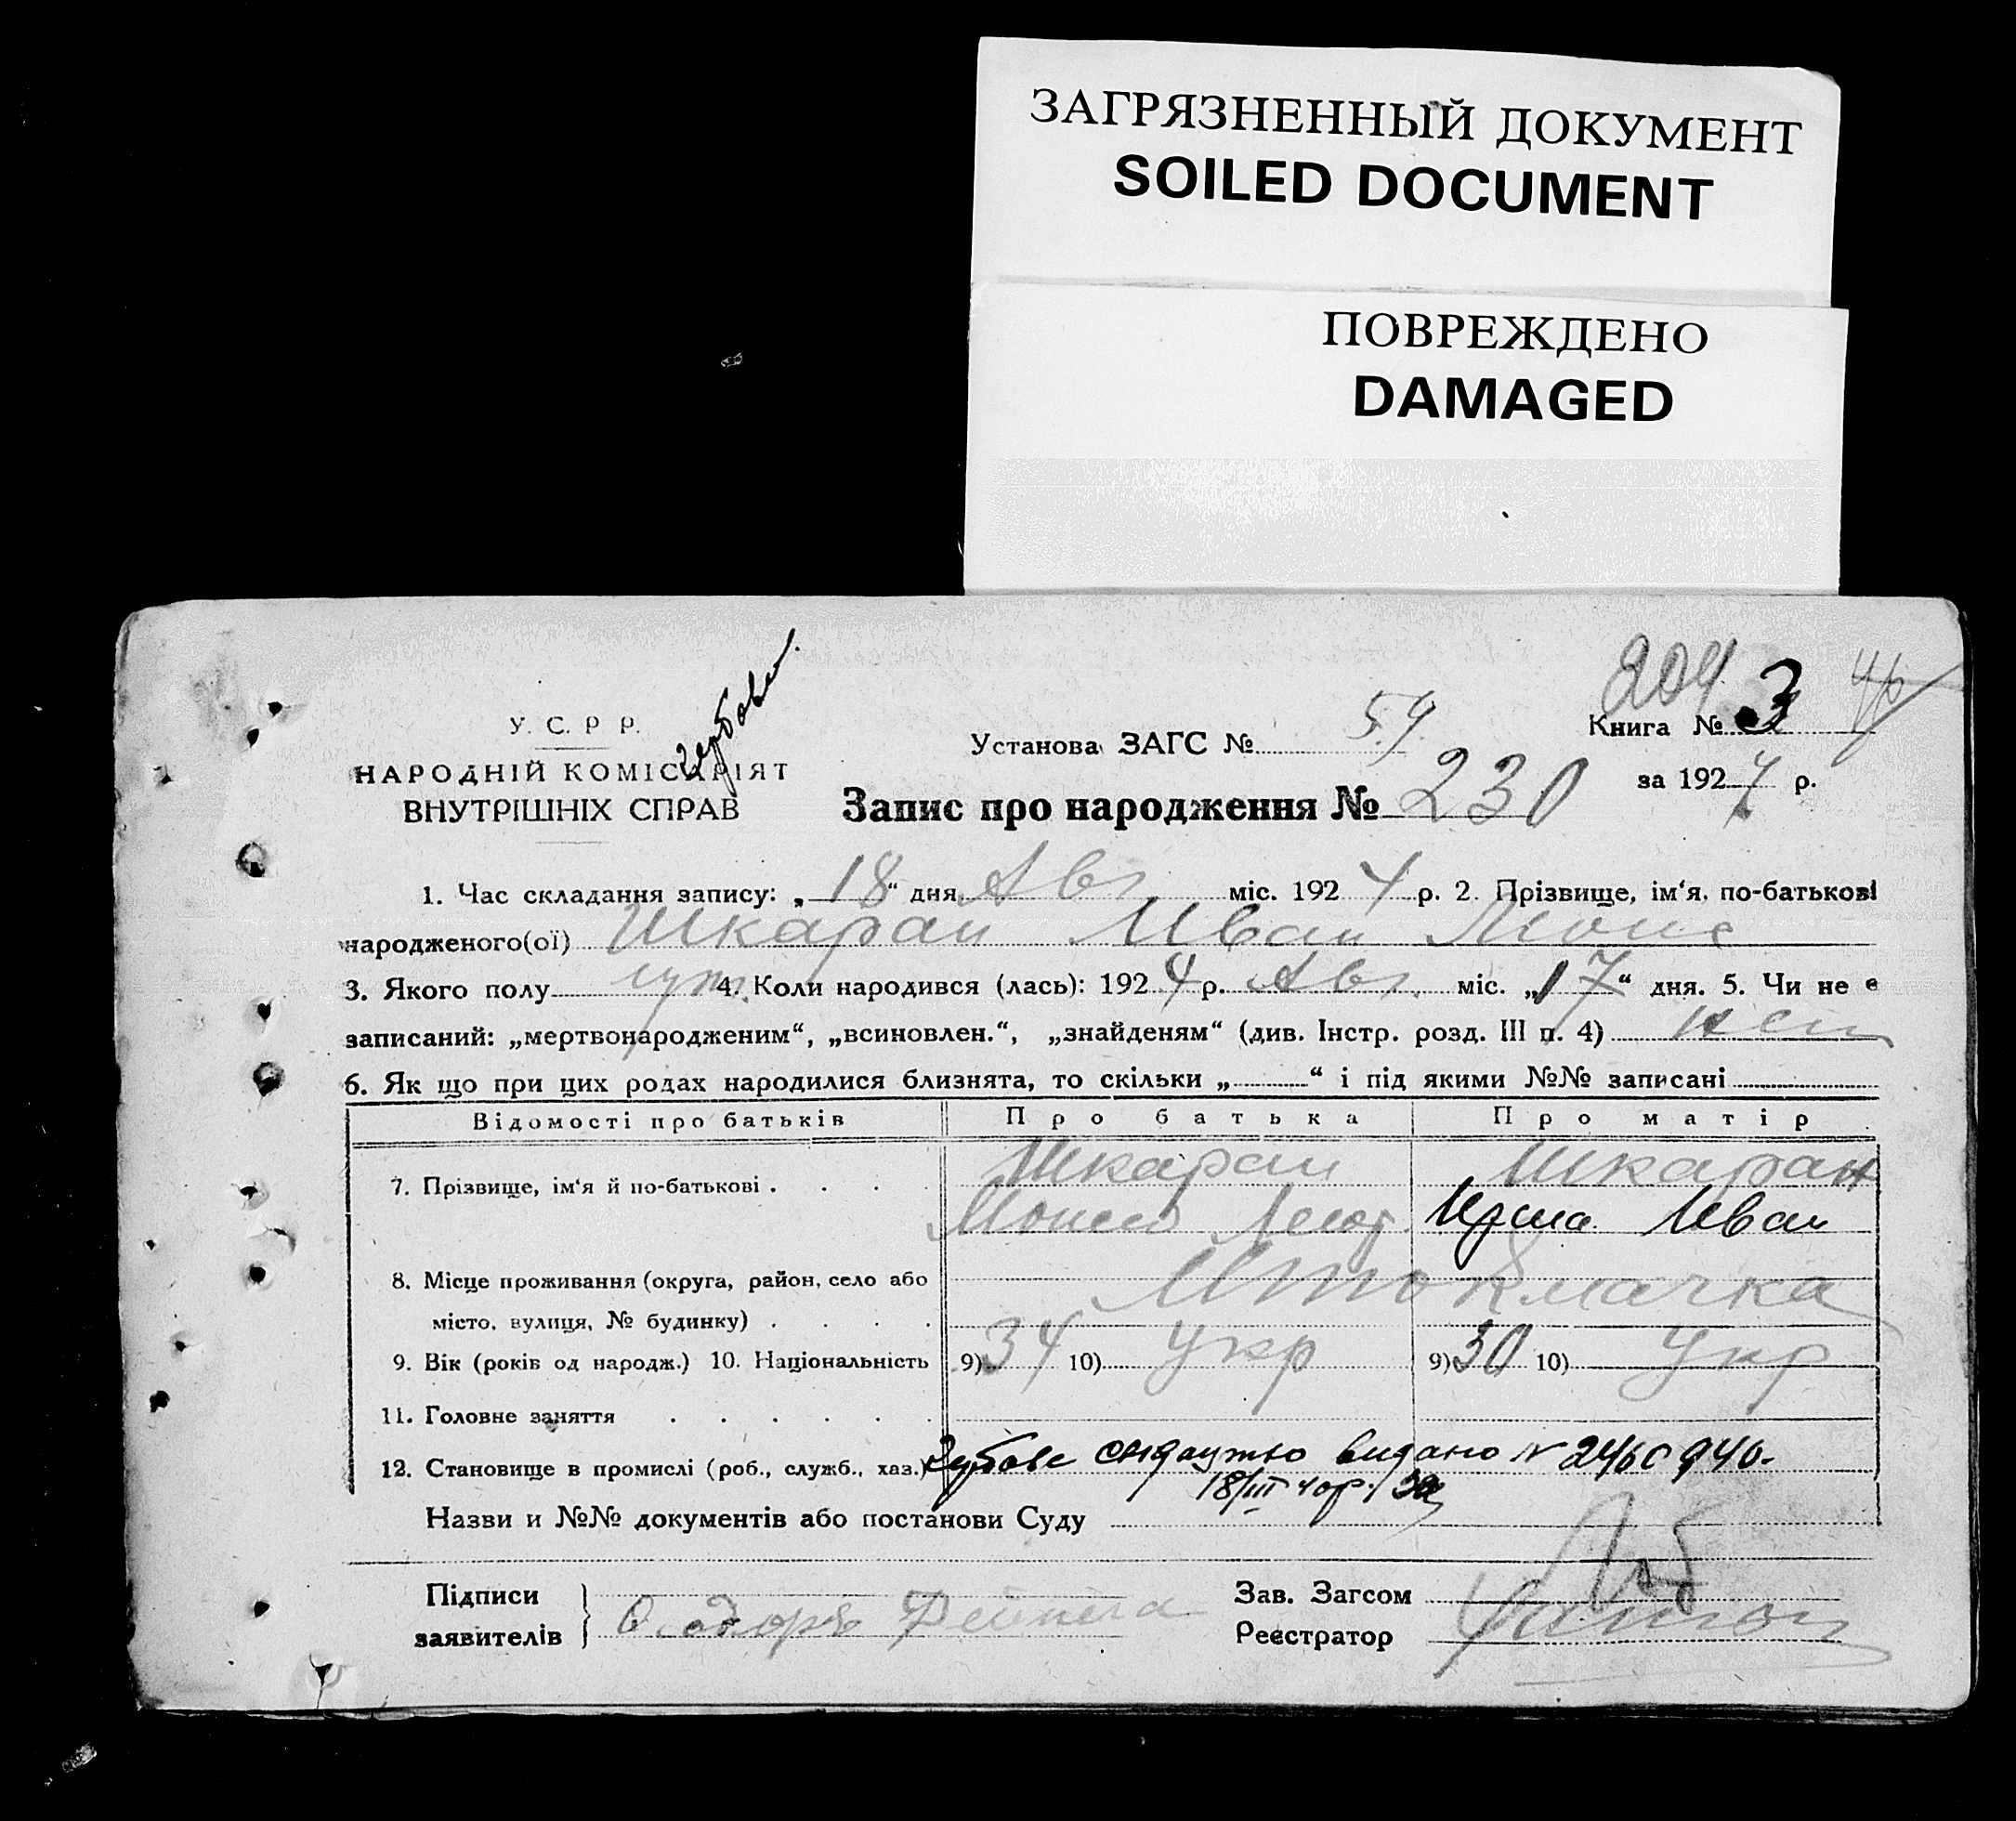 ЗАГРЯЗНЕННЫЙ ДОКУМЕНТ
SOILED DOCUMENT
ПОВРЕЖДЕНО
DAMAGED
204
У. С. Р Р.
Установа ЗАГС № 59
Книга № 3
НАРОДНІЙ КОМІСАРІЯТ
ВНУТРІШНІХ СПРАВ
Запис про народження № 230
за 1924 р.
1. Час складання запису: „18“ дня Авг міс. 1924 р. 2. Прізвище, ім‘я, по-батькові
народженого(ої) Шкаран Иван
3. Якого полу 4. Коли народився (лась): 1924 р. Авг. міс. „17“ дня. 5. Чи не є
записаний: „мертвонародженим“, „всиновлен.“, „знайденям“ (див. Інстр. розд. III п. 4)
6. Як що при цих родах народилися близнята, то скільки „ “ і під якими №№ записані
Відомості про батьків Про батька Про матір
7. Прізвище, ім‘я й по-батькові . . . . Шкаран Шкаран
Иван
8. Місце проживання (округа, район, село або
місто, вулиця, № будинку) . . . .
9. Вік (років од народж.) 10. Національність 9) 34 10) Укр 9) 30 10) Укр
11. Головне заняття . . . . . .
12. Становище в промислі (роб., служб., хаз.) видано N
18/III 40р.
Назви и №№ документів або постанови Суду
Підписи
заявителів
Зав. Загсом
Реєстратор